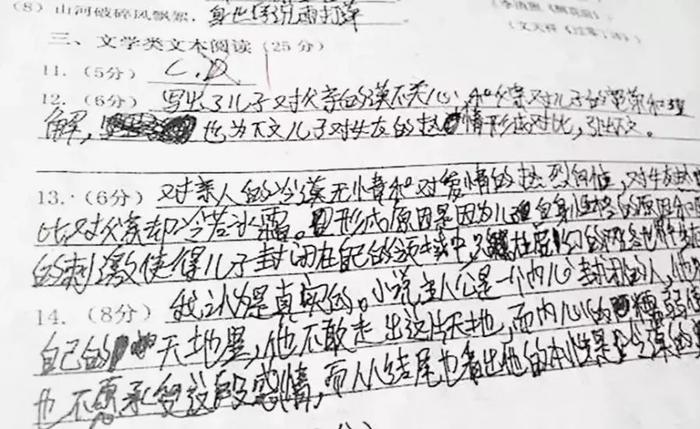 (8) 山河破碎风飘絮，身世浮沉雨打萍
(文天祥《过零丁洋》)
三、文学类文本阅读（25分）
11.（5分） C.D
12.（6分） 写出了儿子对父亲的漠不关心，和父亲对儿子的宽容和理
解， 也为下文儿子对女友的热情形成对比，引出下文。
13.（6分） 对亲人的冷漠无情和对爱情的热烈向往，对女友热
比对父亲却冷若冰霜。形成原因是因为儿子自身性格的原因和
的刺激使得儿子封闭在自己的领域中
我认为是真实的。小说主人公是一个内心封闭的人，
14.（8分）
自己的 天地里，他不敢走出这片天地，而内心的 懦弱
也不愿承受这段感情，而从结尾也看出他的本性是冷漠的